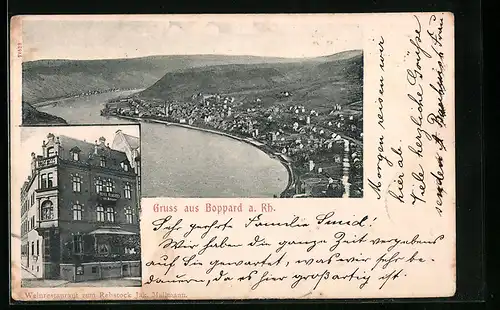 Gruss aus Boppard a. Rh.
Weinrestaurant zum Rebstock Joh. Mallmann.
Sehr geehrte Familie Smid!
Wir haben die ganze Zeit vergebens
auf Sie gewartet, was wir sehr be-
dauern, da es hier großartig ist.
Morgen reisen wir
hier ab.
Viele herzliche Grüße
senden
Frau